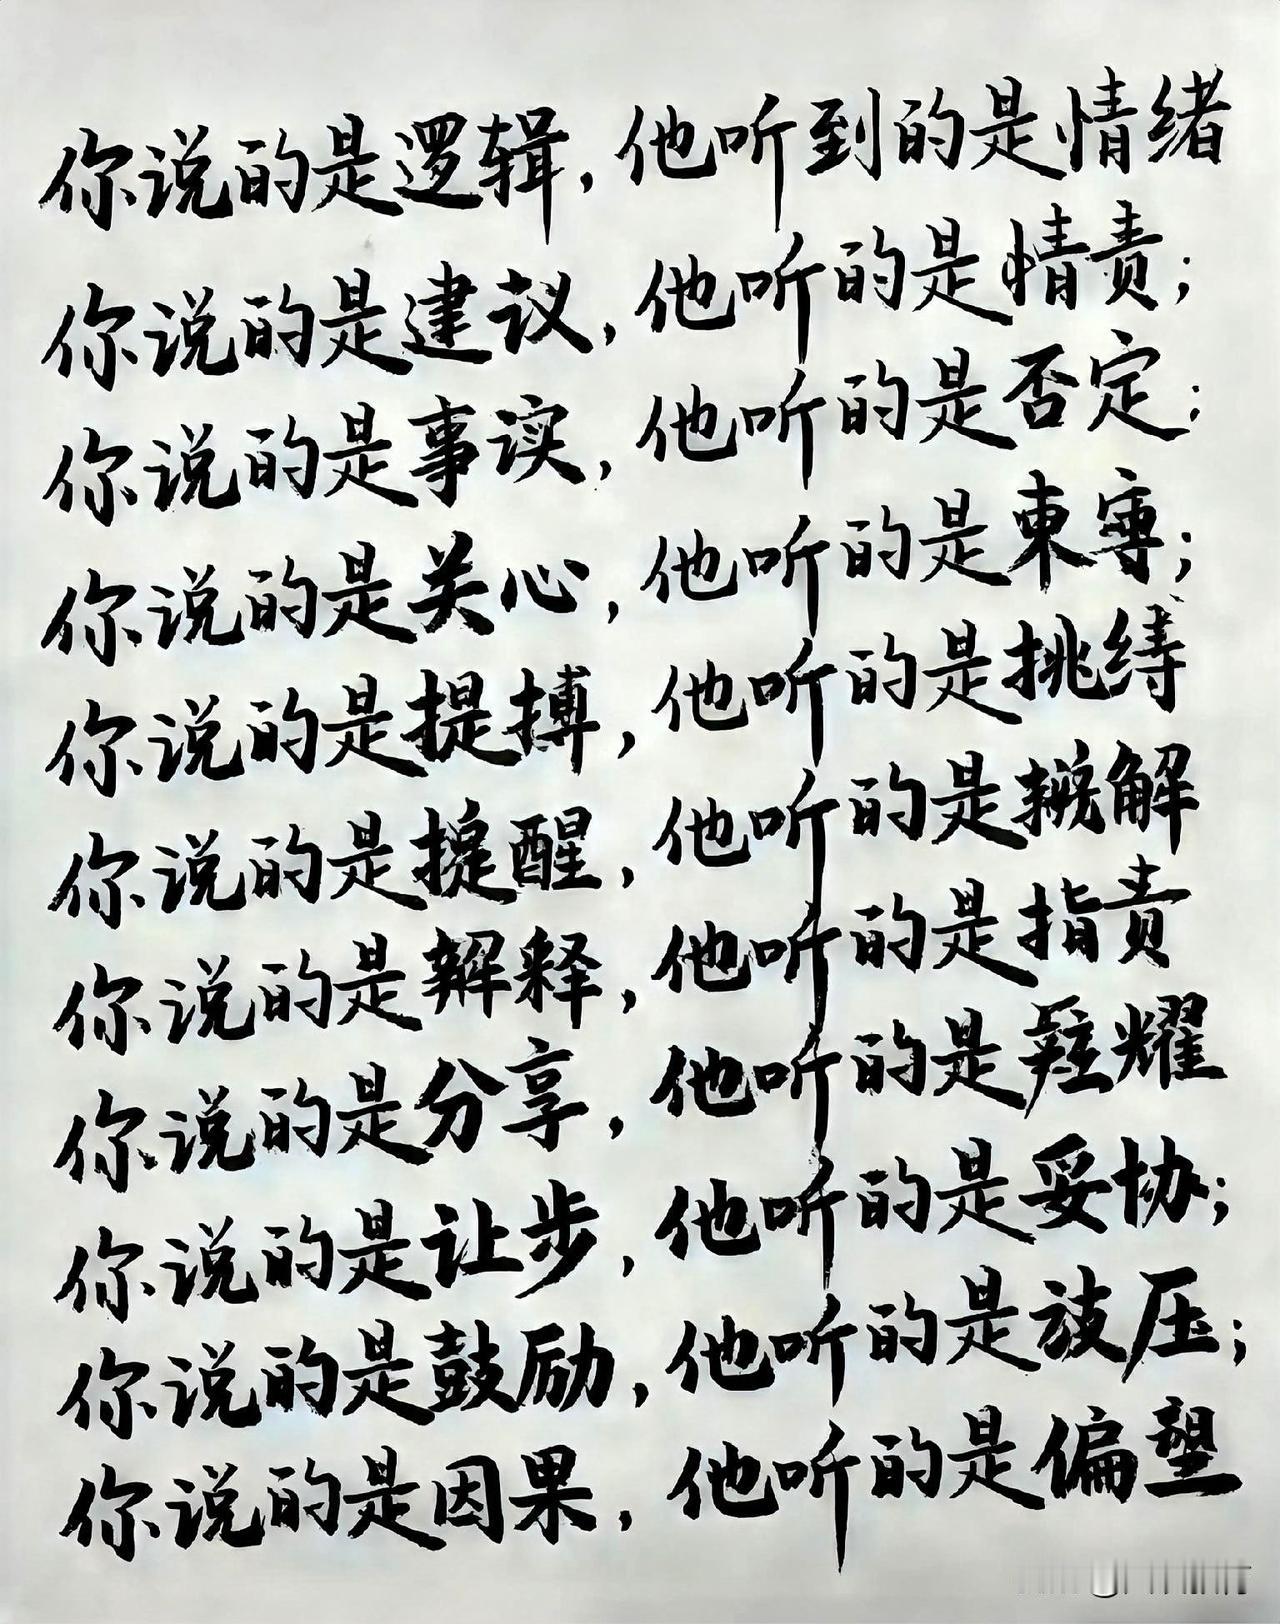 你说的是逻辑，他听到的是情绪
你说的是建议，他听的是情责；
你说的是事读，他听的是否定；
你说的是关心，他听的是東；
你说的是提搏，他听的是挑
你说的是醒，他听的是解
你说的是释，他听的是指责
你说的是分享，他听的是耀
你说的是让步，他听的是妥协；
你说的是鼓励，他听的是压；
你说的是因果，他听的是偏